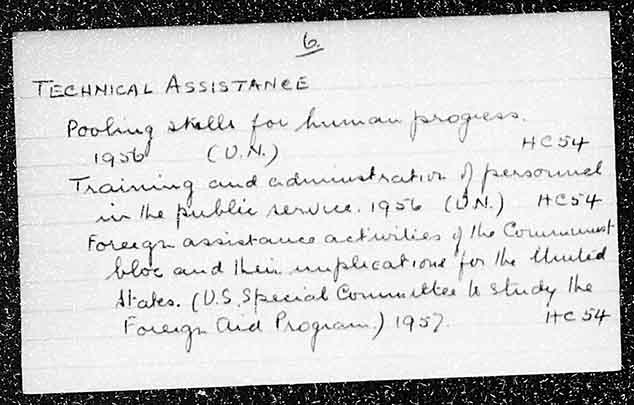 6.
TECHNICAL ASSISTANCE
Pooling skills for human progress.
1956 (U.N.) HC54
Training and administration of personnel
in the public service. 1956 (U.N.) HC54
Foreign assistance activities of the Communist
bloc and their implications for the United
States. (U.S. Special Committee to Study the
Foreign Aid Program.) 1957. HC54